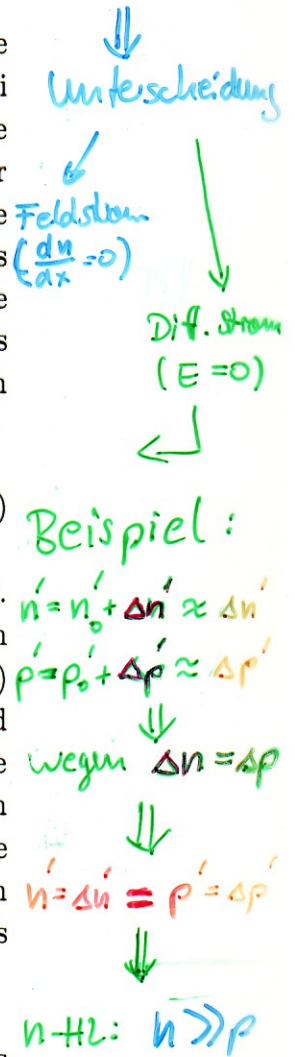 ⇓
Unterscheidung
Feldstrom
(dn/dx = 0)
Diff. Strom
(E = 0)
Beispiel:
n' = n₀' + Δn' ≈ Δn'
p' = p₀' + Δp' ≈ Δp'
⇓
wegen Δn = Δp
⇓
n' = Δn' = p' = Δp'
⇓
n-HL: n >> p